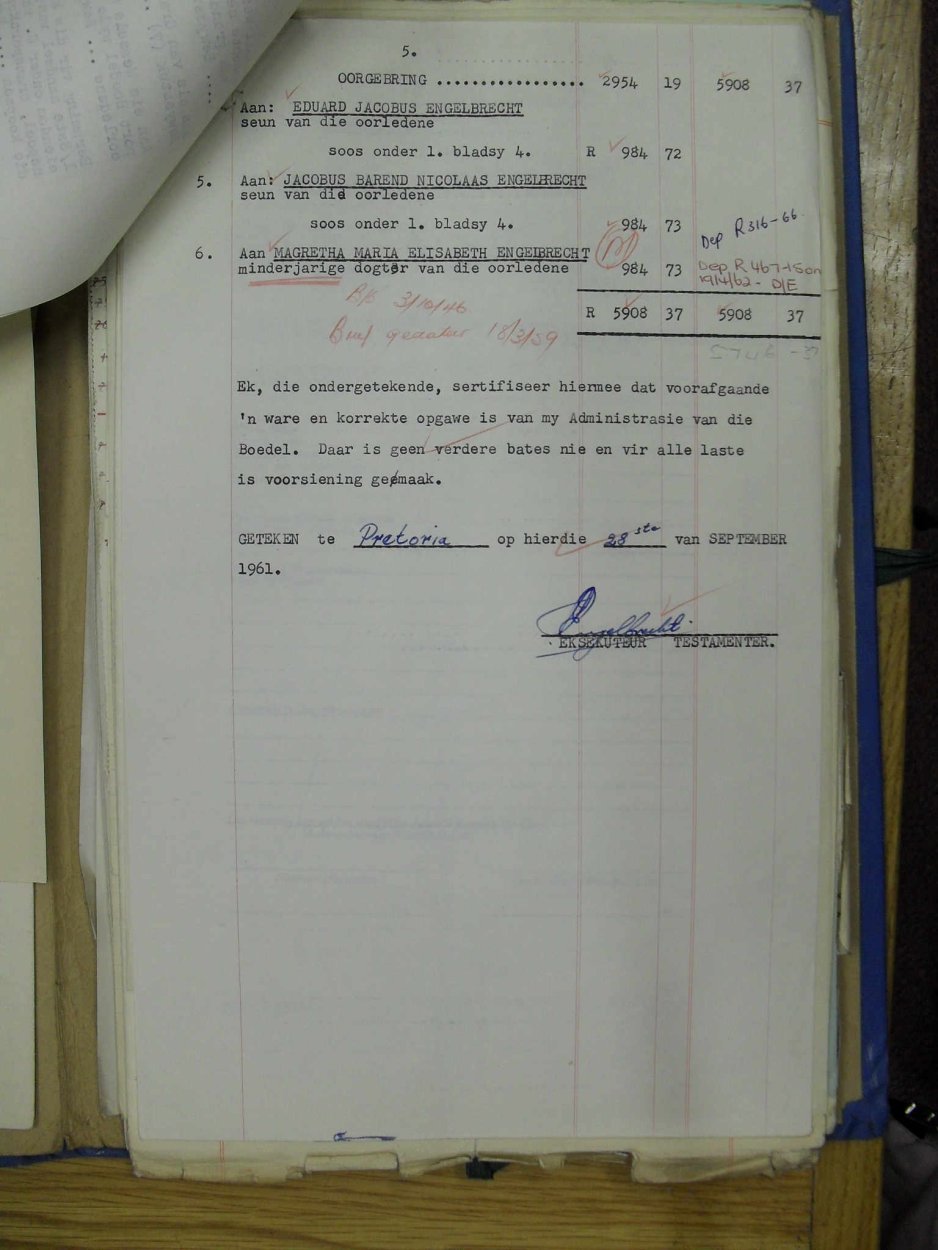 5.
OORGEBRING .................. 2954 19 5908 37
Aan: EDUARD JACOBUS ENGELBRECHT
seun van die oorledene
soos onder 1. bladsy 4. R 984 72
5. Aan: JACOBUS BAREND NICOLAAS ENGELBRECHT
seun van die oorledene
soos onder 1. bladsy 4. 984 73 Dep R316-66
6. Aan MAGRETHA MARIA ELISABETH ENGELBRECHT
minderjarige dogter van die oorledene 984 73 Dep R467-15 on
19/4/62 - D/E
3/10/46
R 5908 37 5908 37
Brief 18/3/59
5746 - 3
Ek, die ondergetekende, sertifiseer hiermee dat voorafgaande
'n ware en korrekte opgawe is van my Administrasie van die
Boedel. Daar is geen verdere bates nie en vir alle laste
is voorsiening gemaak.
GETEKEN te Pretoria op hierdie 28ste van SEPTEMBER
1961.
Engelbrecht
EKSEKUTEUR TESTAMENTER.